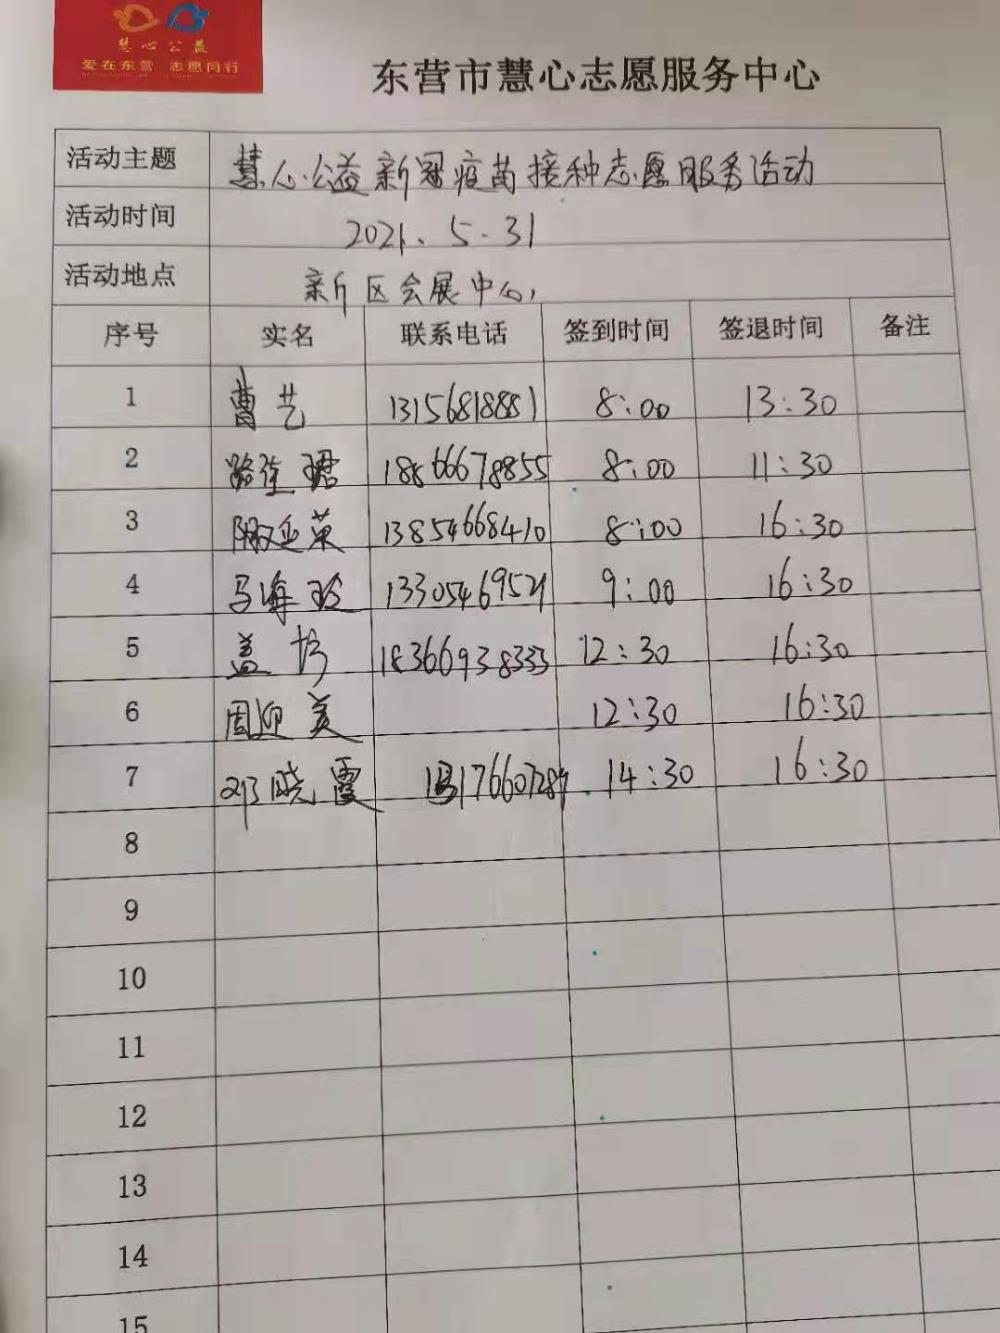 慧心公益
爱在东营 志愿同行
东营市慧心志愿服务中心
活动主题 慧心公益新冠疫苗接种志愿服务活动
活动时间 2021.5.31
活动地点 新区会展中心
序号 实名 联系电话 签到时间 签退时间 备注
1 曹艺 13156818881 8:00 13:30
2 18666678855 8:00 11:30
3 13854668410 8:00 16:30
4 马海玲 13305469521 9:00 16:30
5 盖 18366938333 12:30 16:30
6 周迎美 12:30 16:30
7 邓晓霞 14:30 16:30
8
9
10
11
12
13
14
15